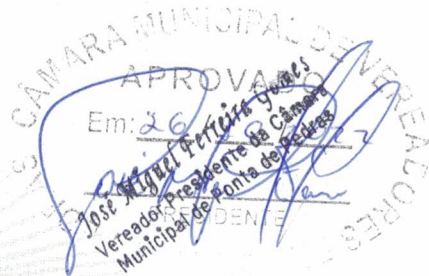 CÂMARA MUNICIPAL DE VEREADORES
APROVADO
Em: 26
José Miguel Ferreira Gomes
Vereador Presidente da Câmara
Municipal de Ponta de Pedras
PRESIDENTE